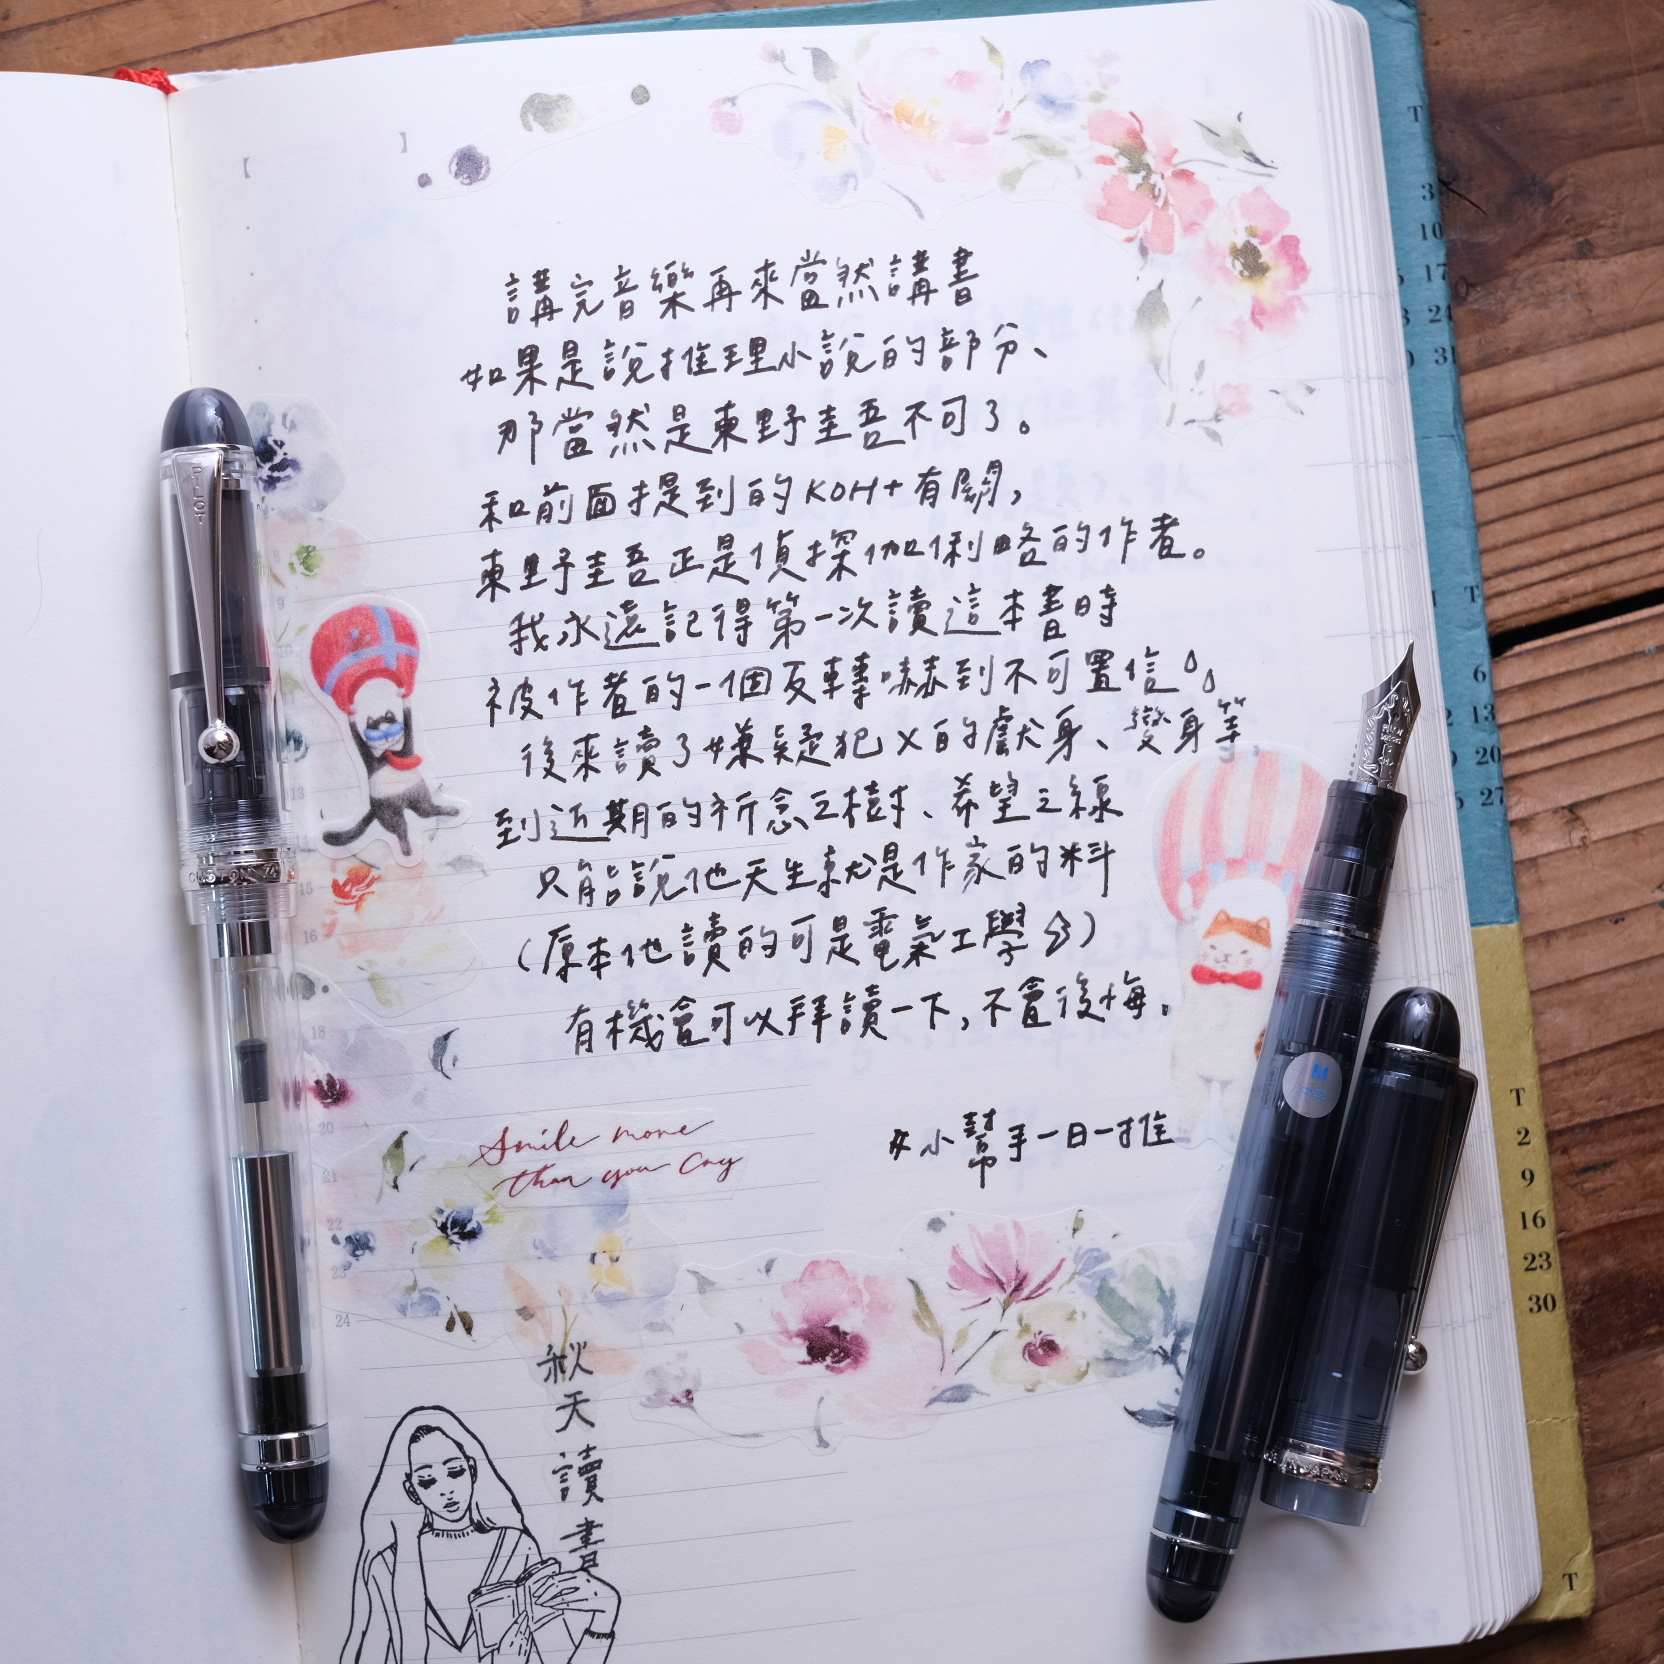 講完音樂再來當然講書
如果是說推理小說的部分、
那當然是東野圭吾不可了。
和前面提到的KOH+有關,
東野圭吾正是偵探伽俐略的作者。
我永遠記得第一次讀這本書時
被作者的一個反轉嚇到不可置信。
後來讀了嫌疑犯X的獻身、變身等,
到近期的祈念之樹、希望之線
只能說他天生就是作家的料
(原本他讀的可是電氣工學)
有機會可以拜讀一下,不會後悔。
#小幫手一日一推
Smile more
than you cry
秋天讀書
PILOT
CUSTOM 74
M
8
9
10
13
14
15
16
18
20
21
22
23
24
T
3
10
17
24
31
T
6
13
20
27
T
2
9
16
23
30
T